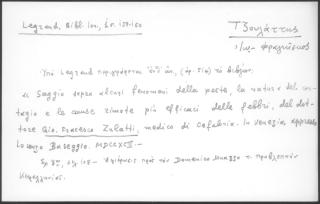 Legrand, Bibl. Ion., σσ. 159-160
Τζουλάττης
Ιω. Φραγκίσκος
Υπό Legrand περιγράφεται (αρ. 510) το βιβλίον,
« Saggio sopra alcuni fenomeni della peste, la natura del con-
tagio e le cause rimote più efficaci delle febbri, del dot-
tore Gio. Francesco Zulatti, medico di Cefalonia. In Venezia, appresso
Lorenzo Baseggio. MDCCXCII.-
Σχ. 8ον, σελ. 108- Αφιέρωσις προς τον Domenico προβλεπτήν
Κεφαλληνίας.